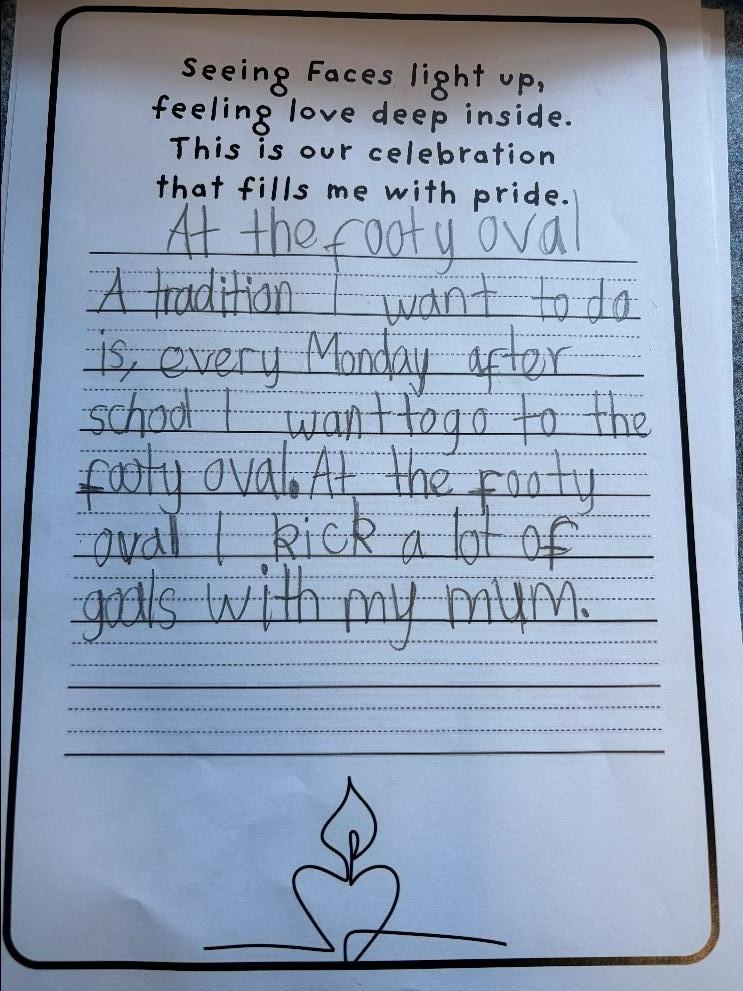 Seeing Faces light up,
feeling love deep inside.
This is our celebration
that fills me with pride.
At the footy oval
A tradition I want to do
is, every Monday after
school I want to go to the
footy oval. At the footy
oval I kick a lot of
goals with my mum.